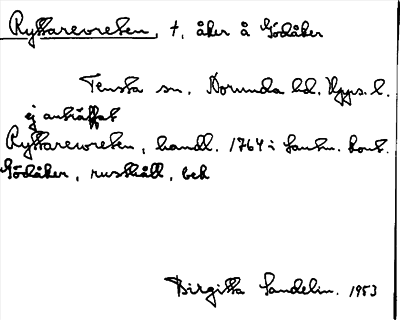 Ryttarevreten, †, åker å Gödåker
Tensta sn. Norunda hd. Upps. l.
ej anträffat
Ryttarevreten, handl. 1764 i Lantm. kont.
Gödåker, rusthåll, beh
Birgitta Sandelin. 1953